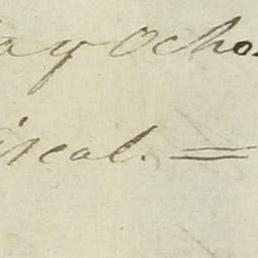 ay ocho
iscal. =